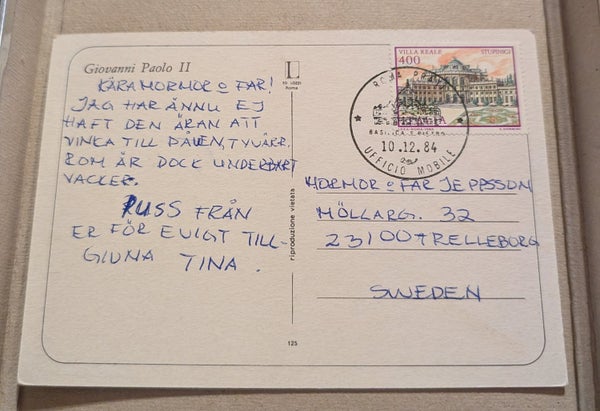 Giovanni Paolo II
KÄRA MORMOR o FAR!
JAG HAR ÄNNU EJ
HAFT DEN ÄRAN ATT
VINKA TILL PÅVEN, TYVÄRR.
ROM ÄR DOCK UNDERBART
VACKER.
PUSS FRÅN
ER FÖR EVIGT TILL-
GIVNA TINA.
L
ED. LOZZI
Roma
riproduzione vietata
125
VILLA REALE STUPINIGI
400
ROMA
BASILICA S. PIETRO
10.12.84
UFFICIO MOBILE
MORMOR o FAR JEPPSSON
MÖLLARG. 32
23100 TRELLEBORG
SWEDEN